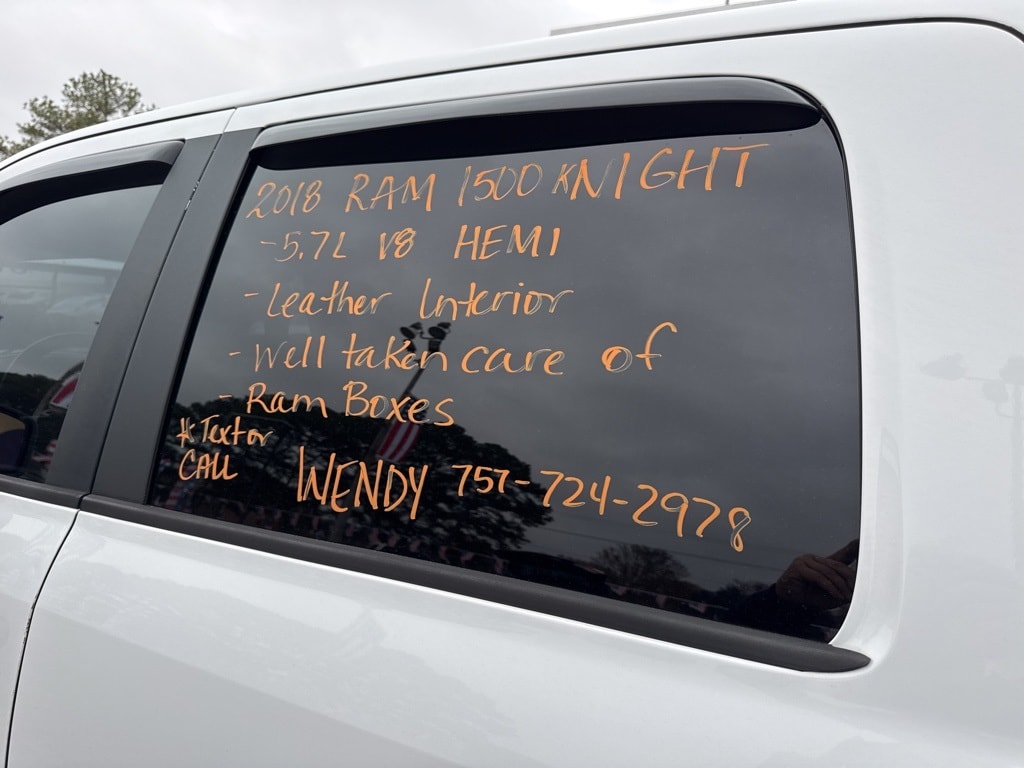 2018 RAM 1500 KNIGHT
- 5.7L V8 HEMI
- Leather Interior
- Well taken care of
- Ram Boxes
* Text or
CALL
WENDY 757-724-2978